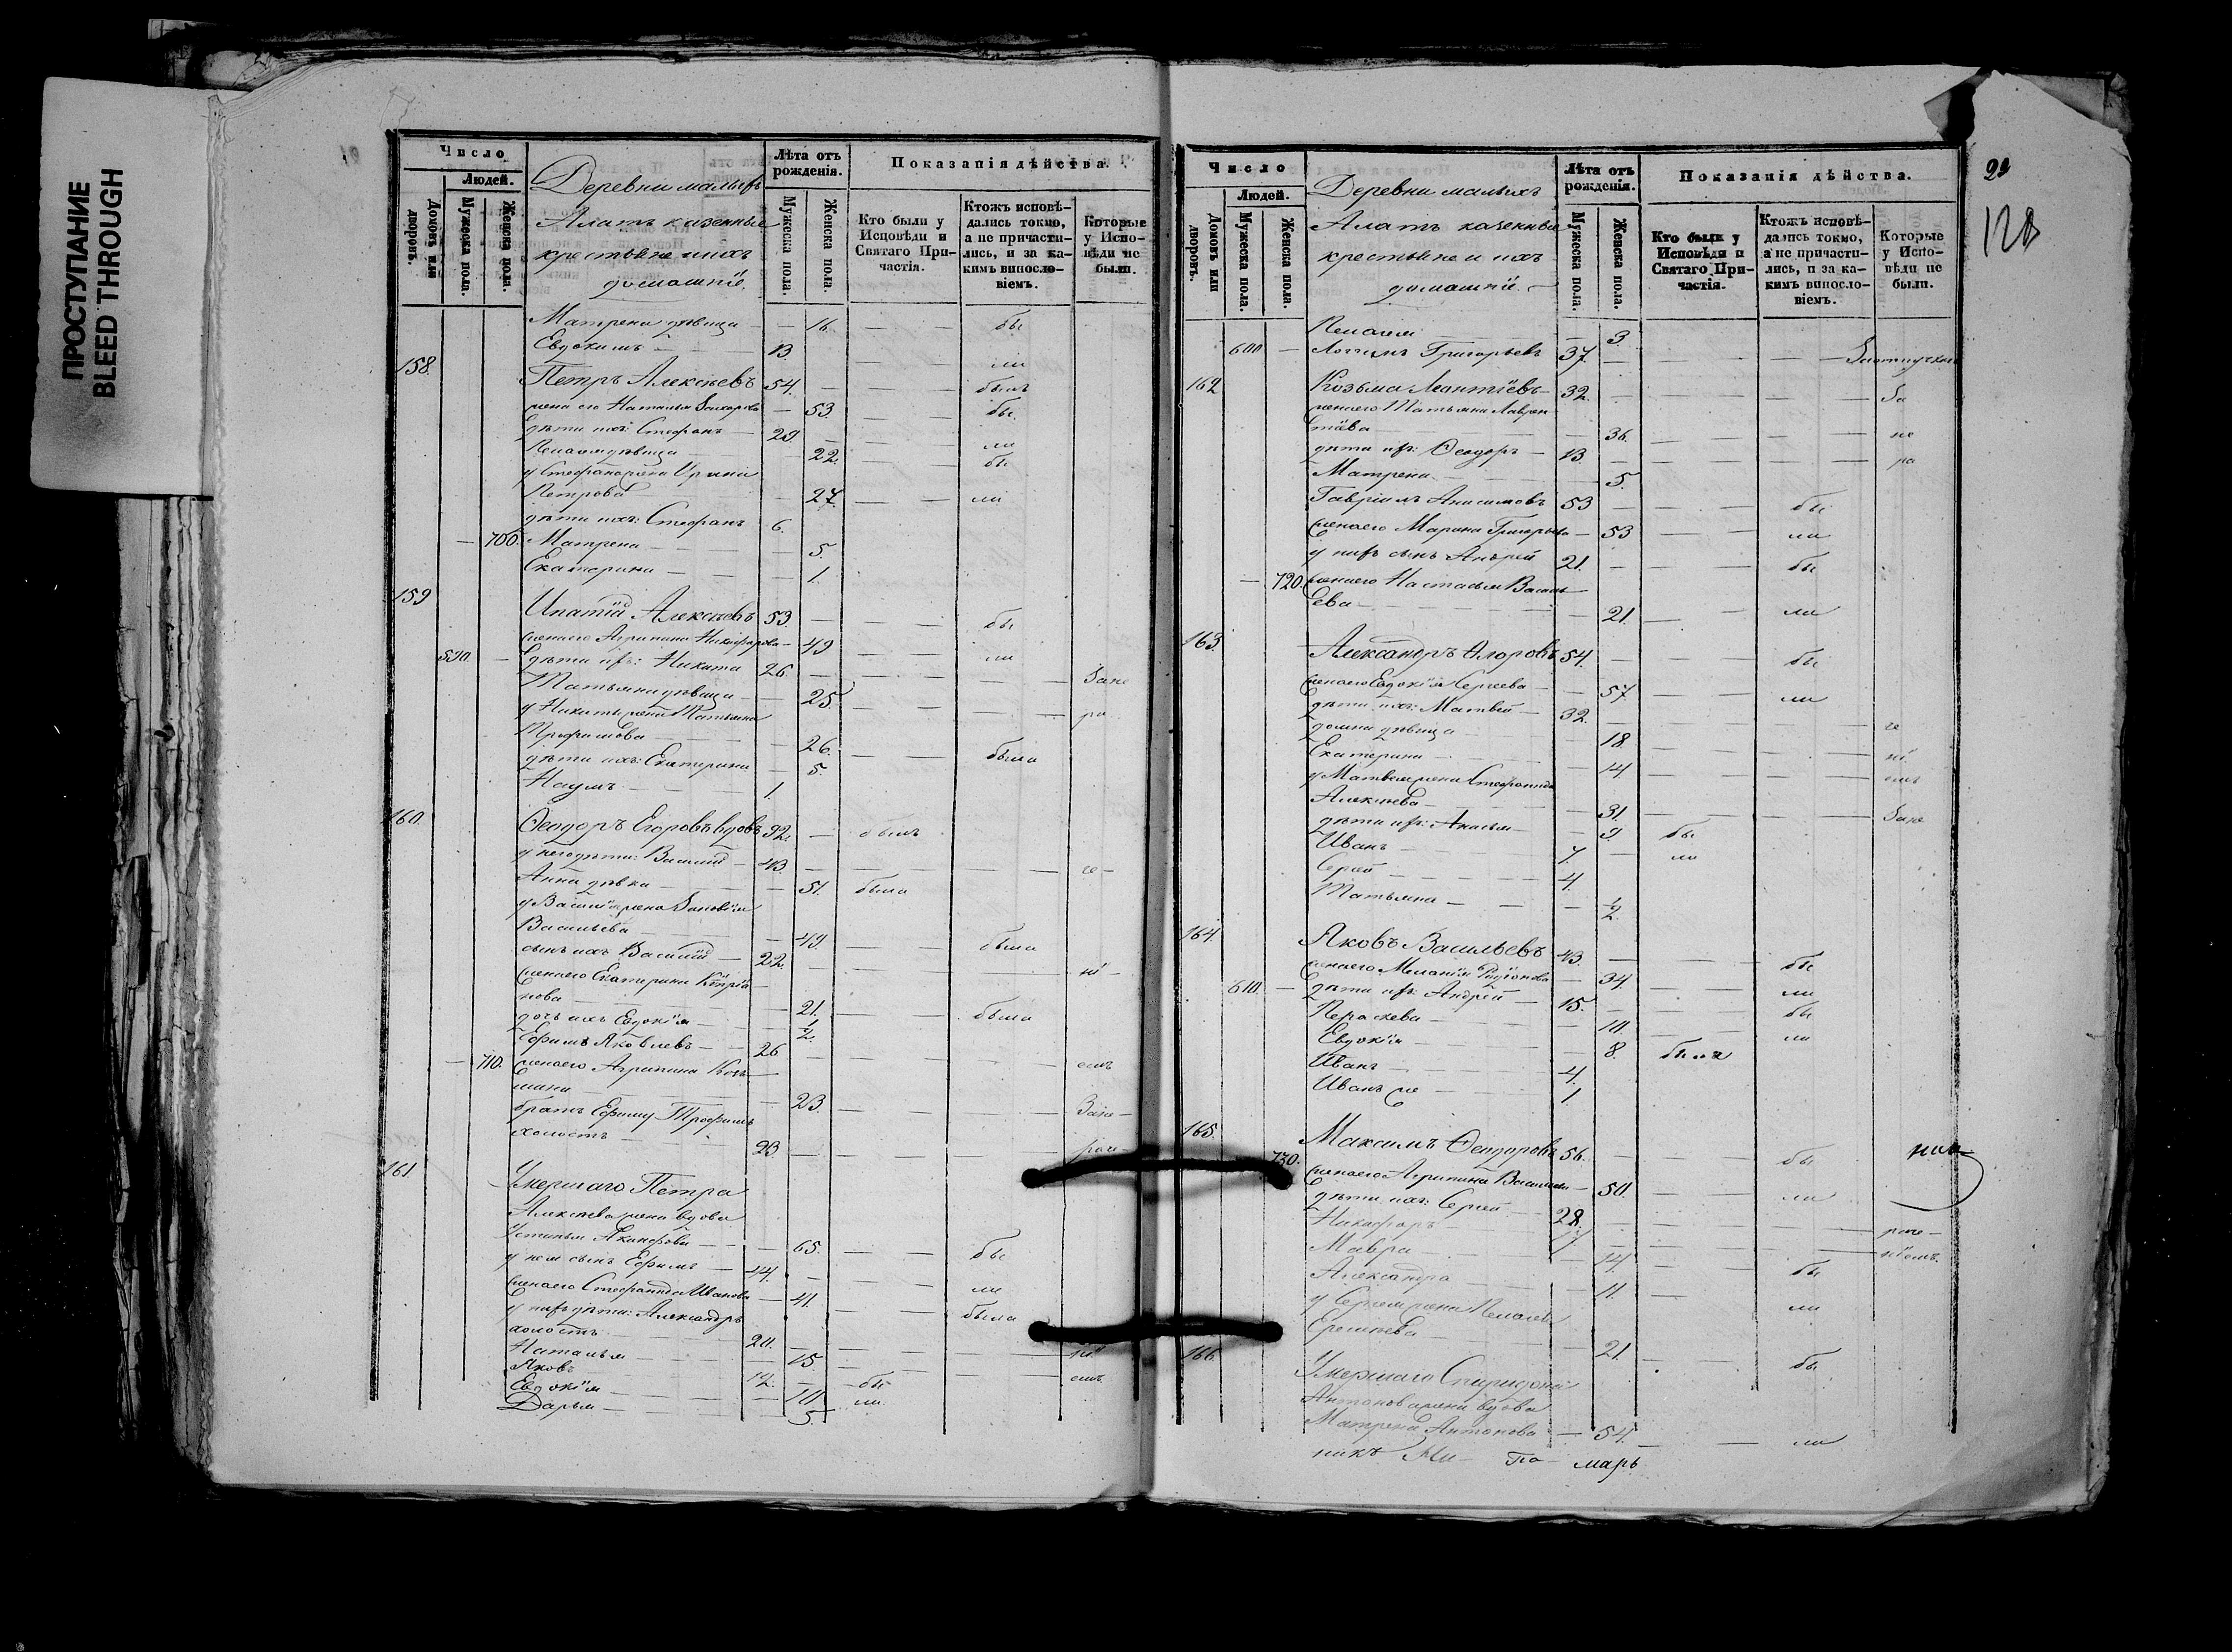 ПРОСТУПАНИЕ
BLEED THROUGH
Число
Людей.
Домовъ или дворовъ.
Мужеска пола.
Женска пола.
Деревни малыхъ
Алатъ казенные
крестьяне и ихъ
домашніе.
Лѣта отъ рожденія.
Мужеска пола.
Женска пола.
Показанія дѣйства.
Кто были у Исповѣди и Святаго Причастія.
Ктожъ исповѣдались токмо, а не причастились, и за какимъ винословіемъ.
Которые у Исповѣди не были.
Матрена дѣвица — 16. бы
Евдокимъ 13. ли
158. Петръ Алексѣевъ 54. былъ
жена его Наталья 53. бы
дѣти ихъ: Стефанъ 29. ли
дѣвица 22. бы
у Стефана жена Ирина
Петрова 27. ли
дѣти ихъ: Стефанъ 6.
700. Матрена 5.
Екатерина 1.
159 Ипатій Алексѣевъ 53. бы
жена его Агрипина Никифорова 49 ли
590 дѣти ихъ: Никита 26. Зане
Татьяна дѣвица 25. ра
у Никиты жена Татьяна
Трофимова 26. была
дѣти ихъ: Екатерина 5.
Наумъ 1.
160. Ѳеодоръ Егоровъ вдовъ 92. былъ
у него дѣти: Василій 43. че
Анна дѣвка 51. была
у Василія жена Зиновія
Васильева 49. была
сынъ ихъ Василій 22. ні
жена его Екатерина
нова 21. была
дочь ихъ Евдокія ½
Ефимъ Яковлевъ 26
710. жена его Агрипина Козь емъ
мина 23. Зане
братъ Ефиму Трофимъ
холостъ 23. раче
161. Умершаго Петра
Алексѣева жена вдова
Устинья 65. бы
у нея сынъ Ефимъ 44. ли
жена его Стефанида Иванова 41. была
у нихъ дѣти: Александръ
холостъ 20. ні
Наталья 15. емъ
Яковъ 12. бы
Евдокія 10. ли
Дарья 5.
Число
Людей.
Домовъ или дворовъ.
Мужеска пола.
Женска пола.
Деревни малыхъ
Алатъ казенные
крестьяне и ихъ
домашніе.
Лѣта отъ рожденія.
Мужеска пола.
Женска пола.
Показанія дѣйства.
Кто были у Исповѣди и Святаго Причастія.
Ктожъ исповѣдались токмо, а не причастились, и за какимъ винословіемъ.
Которые у Исповѣди не были.
Пелагея 3.
600 Григорьевъ 37.
162 Козьма Леонтіевъ 32. За
жена его Татьяна Лаврен
тіева 36. не
дѣти ихъ: Ѳеодоръ 13. ра
Матрена 5.
Гавріилъ Анисимовъ 53 бы
жена его Марина Григорьева 53 ли
у нихъ сынъ Андрей 21. бы
720. жена его Настасья Василь
ева 21. ли
163. Александръ 54. бы
жена его Евдокія Сергеева 57 ли
дѣти ихъ: Матвей 32. че
Домна дѣвица 18. ні
Екатерина 14 емъ
у Матвея жена Стефанида
Алексѣева 31. Зане
дѣти ихъ: 9. бы
Иванъ 7. ли
Сергей 4.
Татьяна ½
164. Яковъ Васильевъ 43. бы
жена его Меланія Родіонова 34. ли
610. дѣти ихъ: Андрей 15. бы
Параскева 10. ли
Евдокія 8. была
Иванъ 4.
Иванъ же 1.
165. Максимъ Ѳеодоровъ 56. бы
730. жена его Агрипина Васильева 50. ли
дѣти ихъ: Сергей 28. раче
Никифоръ ніемъ.
Мавра 14. бы
Александра 11. ли
у Сергея жена Пелагея
Еремѣева 21. бы
166. Умершаго Спиридона
Антонова жена вдова
Матрена Антонова 54. ли
никъ па марь